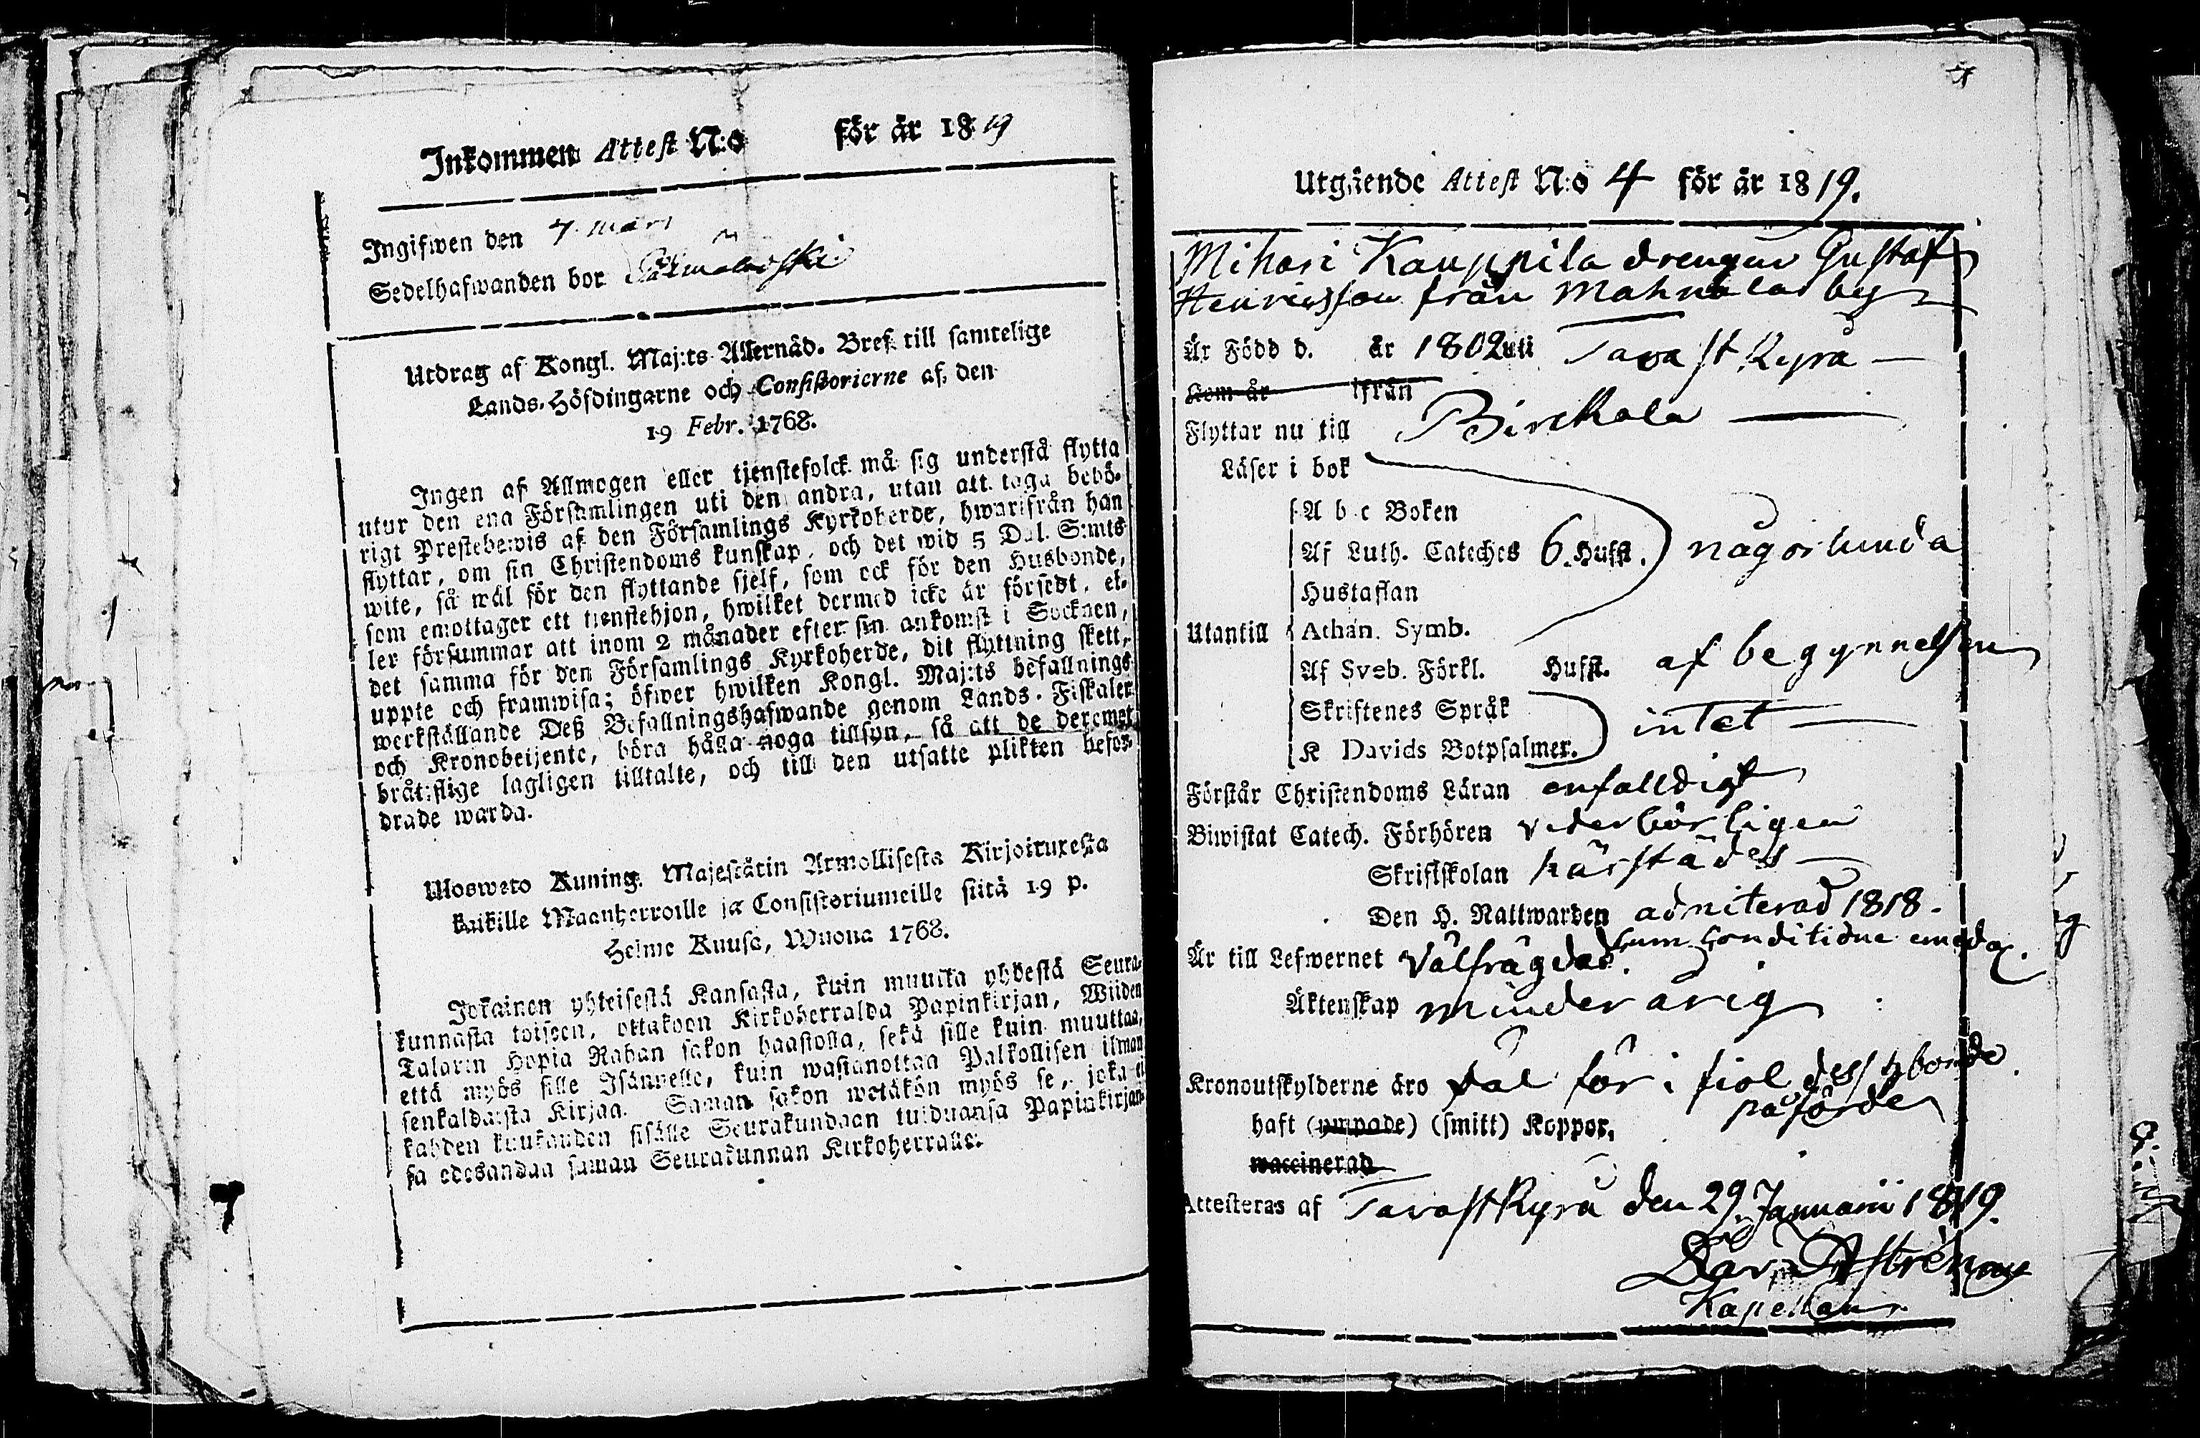 Inkommen Attest N:o för år 1819
Ingifwen den 7 mars
Sedelhafwanden bor
Utdrag af Kongl. Maj:ts Allernåd. Bref till samtelige
Lands-Höfdingarne och Consistorierne af den
19 Febr. 1768.
Ingen af Allmogen eller tjenstefolck må sig understå flytta
utur den ena Församlingen uti den andra, utan att taga behö-
rigt Prestebewis af den Församlings Kyrkoherde, hwarifrån han
flyttar, om sin Christendoms kunskap, och det wid 5 Dal. S:mts
wite, så wäl för den flyttande sjelf, som ock för den Husbonde,
som emottager ett tienstehjon, hwilket dermed icke är försedt, el-
ler försummar att inom 2 månader efter sin ankomst i Socknen,
det samma för den Församlings Kyrkoherde, dit flyttning skett,
uppte och framwisa; öfwer hwilken Kongl. Maj:ts befallnings
werkställande Deß Befallningshafwande genom Lands-Fiskaler
och Kronobetjente, böra hålla noga tillsyn, så att de deremot
bråtsflige lagligen tilltalte, och till den utsatte plikten befor-
drade warda.
Uloswето Kuning. Majestätin Armollisesta Kirjoituxesta
kaikille Maanherroille ja Consistoriumeille siitä 19 p.
Helme Kuusa, Wuona 1768.
Jokainen yhteisestä Kansasta, kuin muutta yhdestä Seura-
kunnasta toiseen, ottakoon Kirkoherralda Papinkirjan, Wiiden
Talarin Hopia Rahan sakon haastolla, sekä sille kuin muuttaa,
että myös sille Isännelle, kuin wastanottaa Palkollisen ilman
senkaldaista Kirjaa. Saman sakon wetäkön myös se, joka ei
kahden kuukauden sisälle Seurakundaan tulduansa Papinkirjan-
sa edesandaa saman Seurakunnan Kirkoherralle.
Utgående Attest N:o 4 för år 1819.
Mihari Kauppila drengen Gustaf
Henricsson från Mahnala by
Är Född d. år 1802 uti Tavastkyrå
Kom år ifrån
Flyttar nu till Birckala
Läser i bok
A b c Boken
Af Luth. Cateches 6. Hufst. någorlunda
Hustaflan
Utantill Athan. Symb.
Af Sveb. Förkl. Hufst. af begynnelsen
Skriftenes Språk
K Davids Botpsalmer. intet
Förstår Christendoms Läran enfalldigt
Biwistat Catech. Förhören vederbörligen
Skriftskolan härstädes
Den H. Nattwarden admiterad 1818.
cum conditione emenda.
Är till Lefwernet Välfrägdad.
Äktenskap minderårig
Kronoutskylderne äro för i fiol dess hbonde
påförde
haft (ympade) (smitt) Koppor,
waccinerad
Attesteras af Tavastkyrå den 29. Januarii 1819.
Dav. Astrén
Kapellan